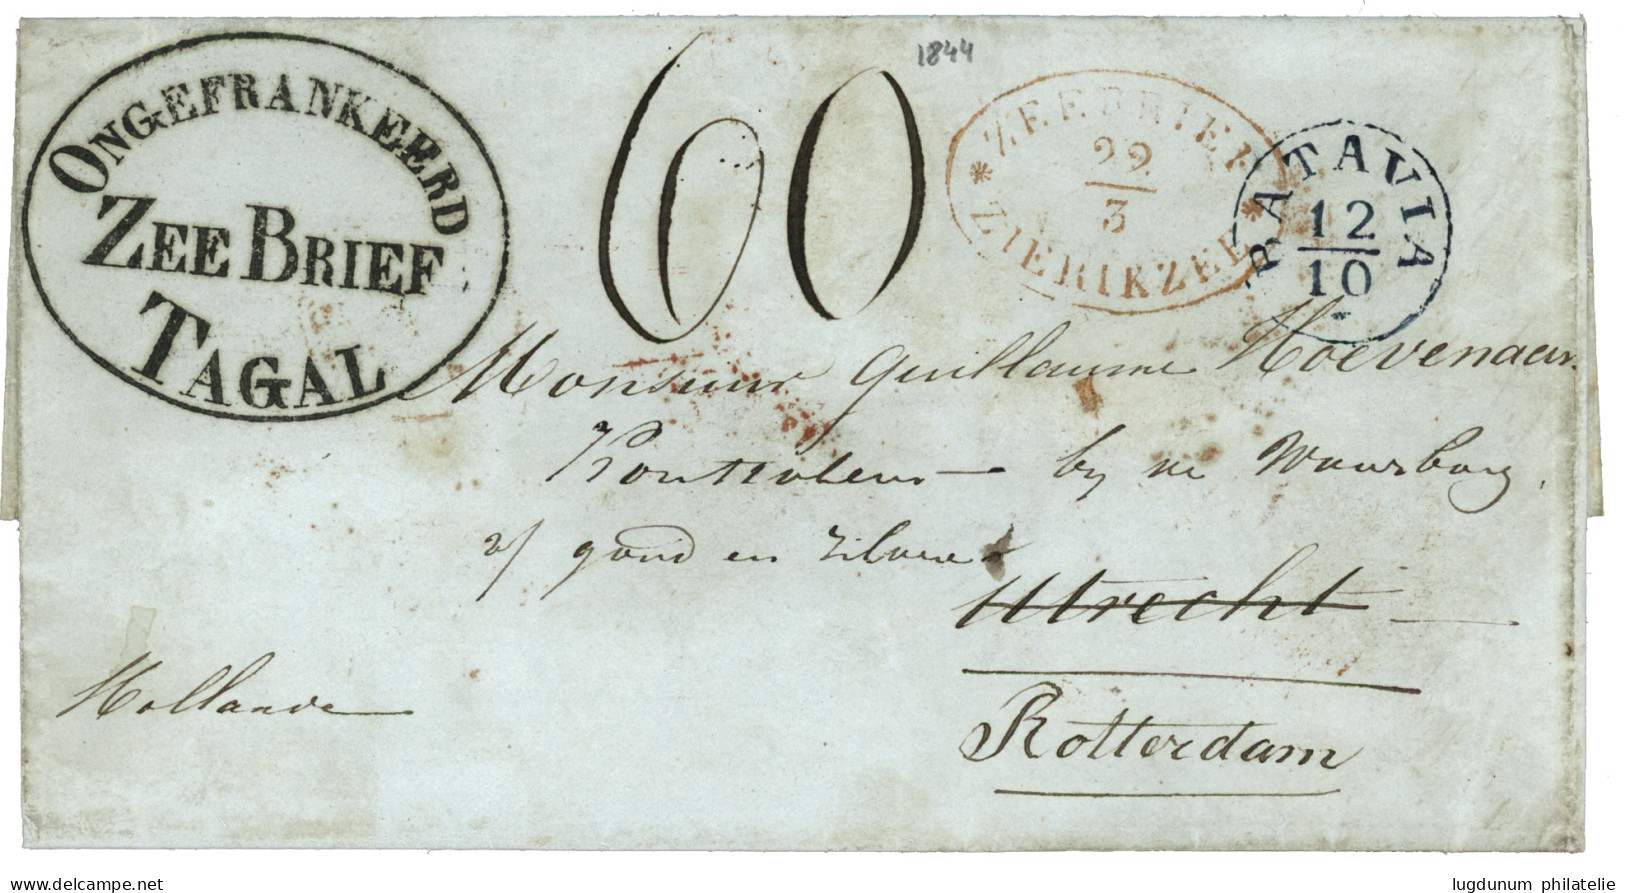 ONGEFRANKEERD
ZEE BRIEF
TAGAL
60
1844
* ZEEBRIEF *
22
3
ZIERIKZEE
BATAVIA
12
10
Monsieur Guillaume Hoevenaar.
Controleur by de Waarborg
v/ goud en zilver
Utrecht
Hollande
Rotterdam
lugdunum philatelie
delcampe.net